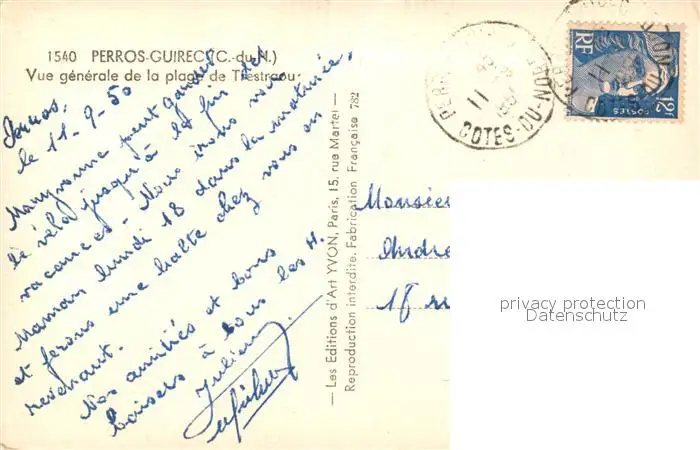 1540 PERROS-GUIREC (C.-du-N.)
Vue générale de la plage de Trestraou
le 11-9-50
peut garder
le vélo jusqu'à la fin des
vacances - Nous irons voir
Maman lundi 18 dans la matinée,
et ferons une halte chez vous en
revenant.
Nos amitiés et bons
baisers à tous les 4.
— Les Editions d'Art YVON, Paris, 15, rue Martel —
Reproduction interdite. Fabrication Française 782
COTES-DU-N
11
RF
POSTES
12F
Monsieur
André
18
privacy protection
Datenschutz